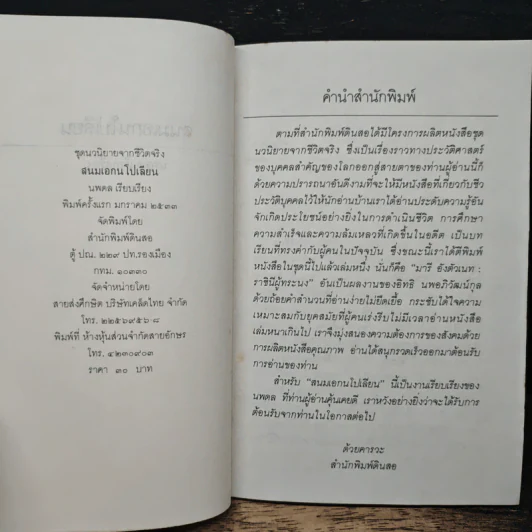 ชุดนวนิยายจากชีวิตจริง
สนมเอกนโปเลียน
นพดล เรียบเรียง
พิมพ์ครั้งแรก มกราคม ๒๕๓๓
จัดพิมพ์โดย
สำนักพิมพ์ดินสอ
ตู้ ปณ. ๒๒๙ ปท.รองเมือง
กทม. ๑๐๓๓๐
จัดจำหน่ายโดย
สายส่งศึกษิต บริษัทเคล็ดไทย จำกัด
โทร. ๒๒๕๙๕๓๖-๘
พิมพ์ที่ ห้างหุ้นส่วนจำกัดสายอักษร
โทร. ๔๒๓๐๙๐๓
ราคา ๓๐ บาท
คำนำสำนักพิมพ์
ตามที่สำนักพิมพ์ดินสอได้มีโครงการผลิตหนังสือชุด
นวนิยายจากชีวิตจริง ซึ่งเป็นเรื่องราวทางประวัติศาสตร์
ของบุคคลสำคัญของโลกออกสู่สายตาของท่านผู้อ่านนี้ก็
ด้วยความปรารถนาอันดีงามที่จะให้มีหนังสือที่เกี่ยวกับชีว
ประวัติบุคคลไว้ให้นักอ่านบ้านเราได้อ่านประดับความรู้อัน
จักเกิดประโยชน์อย่างยิ่งในการดำเนินชีวิต การศึกษา
ความสำเร็จและความล้มเหลวที่เกิดขึ้นในอดีต เป็นบท
เรียนที่ทรงค่ากับผู้คนในปัจจุบัน ซึ่งขณะนี้เราได้ตีพิมพ์
หนังสือในชุดนี้ไปแล้วเล่มหนึ่ง นั่นก็คือ "มารี อังตัวเนท :
ราชินีผู้ทระนง" อันเป็นผลงานของอิทธิ นพอภิวัฒน์กุล
ด้วยถ้อยคำสำนวนที่อ่านง่ายไม่ยืดเยื้อ กระชับได้ใจความ
เหมาะสมกับยุคสมัยที่ผู้คนเร่งรีบไม่มีเวลาอ่านหนังสือ
เล่มหนาเกินไป เราจึงมุ่งสนองความต้องการของสังคมด้วย
การผลิตหนังสือคุณภาพ อ่านได้สนุกรวดเร็วออกมาต้อนรับ
การอ่านของท่าน
สำหรับ "สนมเอกนโปเลียน" นี้เป็นงานเรียบเรียงของ
นพดล ที่ท่านผู้อ่านคุ้นเคยดี เราหวังอย่างยิ่งว่าจะได้รับการ
ต้อนรับจากท่านในโอกาสต่อไป
ด้วยคารวะ
สำนักพิมพ์ดินสอ